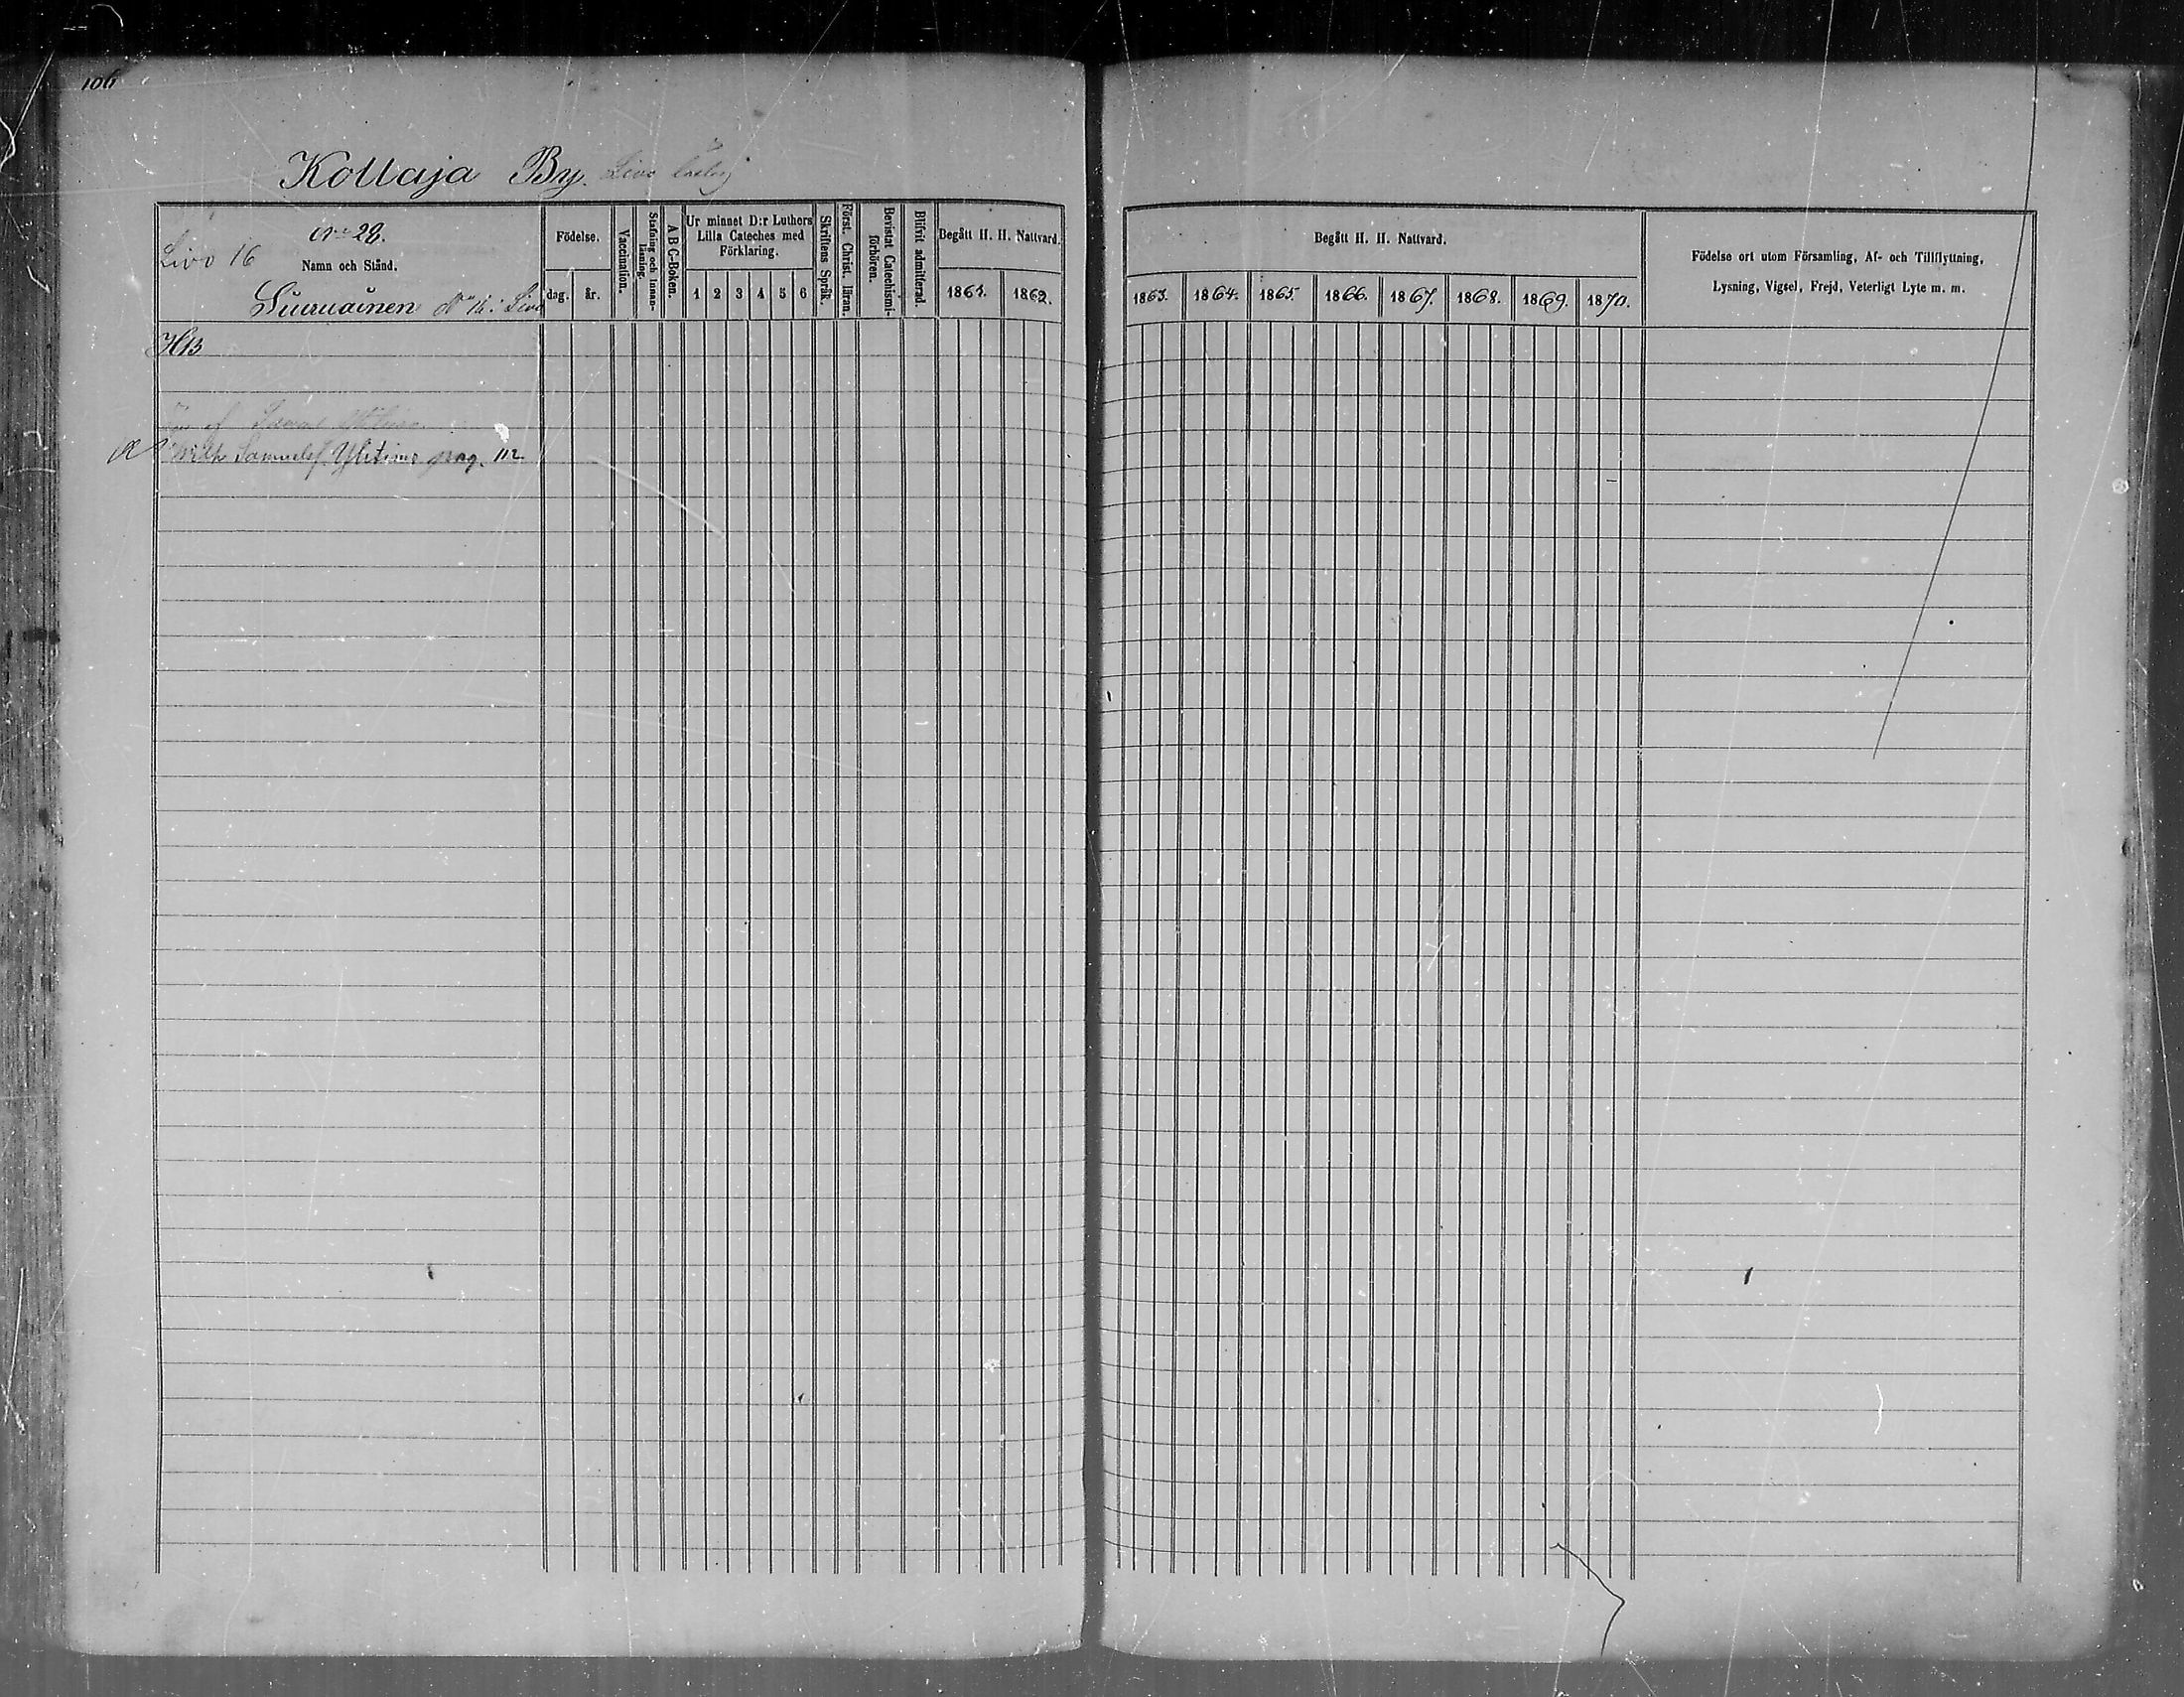 106
Kollaja By. Livo
N:o 28.
Livo 16
Namn och Stånd.
Siuruainen N:o 16: Livo
Födelse.
dag. år.
Vaccination.
Stafning och Innan-läsning.
A B C-Boken.
Ur minnet D:r Luthers
Lilla Cateches med
Förklaring.
1 2 3 4 5 6
Skriftens Språk.
Först. Christ. läran.
Bevistat Catechismi-förhören.
Blifvit admitterad.
Begått H. H. Nattvard.
1861. 1862.
Begått H. H. Nattvard.
1863. 1864. 1865. 1866. 1867. 1868. 1869. 1870.
Födelse ort utom Församling, Af- och Tillflyttning,
Lysning, Vigsel, Frejd, Veterligt Lyte m. m.
HB
Samuelsf. Ylitimo pag. 112